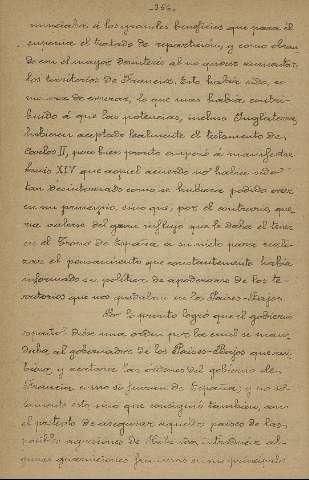 -356-
nunciador á los grandes beneficios que para él
supone el tratado de repartición, y como obran
do con el mayor desinterés al no querer aumentar
los territorios de Francia. Esto había sido, es
de creer, lo que mas había contri-
buido á que las potencias, incluso Inglaterra,
hubiesen aceptado lealmente el testamento de
Carlos II, pero bien pronto empezó á manifestar
Luis XIV que aquel acuerdo no había sido
tan desinteresado como se hubiera podido creer
en un principio, sino que, por el contrario, que-
ría valerse del gran influjo que le daba el tener
en el Trono de España á su nieto para reali-
zar el pensamiento que constantemente había
informado su política de apoderarse de los te-
rritorios que nos quedaban en los Países-Bajos.
Por lo pronto logró que el gobierno
español diese una orden por la cual se man-
daba al gobernador de los Países-Bajos que
y acatase las órdenes del gobierno de
Francia, como si fueran de España; y no so-
lamente esto, sino que consiguió también, con
el pretexto de asegurar aquellos países de las
posibles agresiones de introducir al-
gunas guarniciones francesas en sus principales